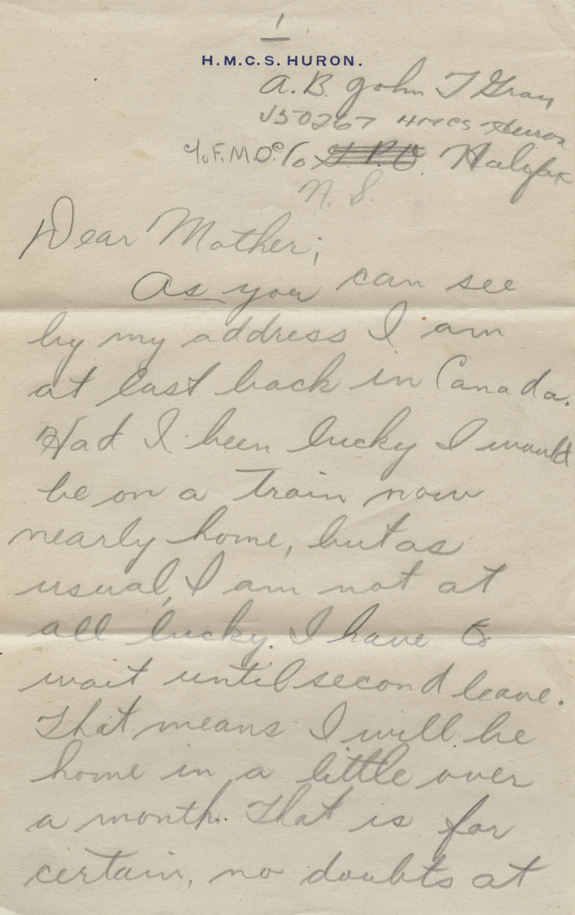 1
H.M.C.S. HURON.
A.B. John T Gray
V50267 HMCS Huron
c/o F.M.O. c/o G.P.O. Halifax
N.S.
Dear Mother;
As you can see
by my address I am
at last back in Canada.
Had I been lucky I would
be on a train now
nearly home, but as
usual, I am not at
all lucky. I have to
wait until second leave.
That means I will be
home in a little over
a month. That is for
certain, no doubts at